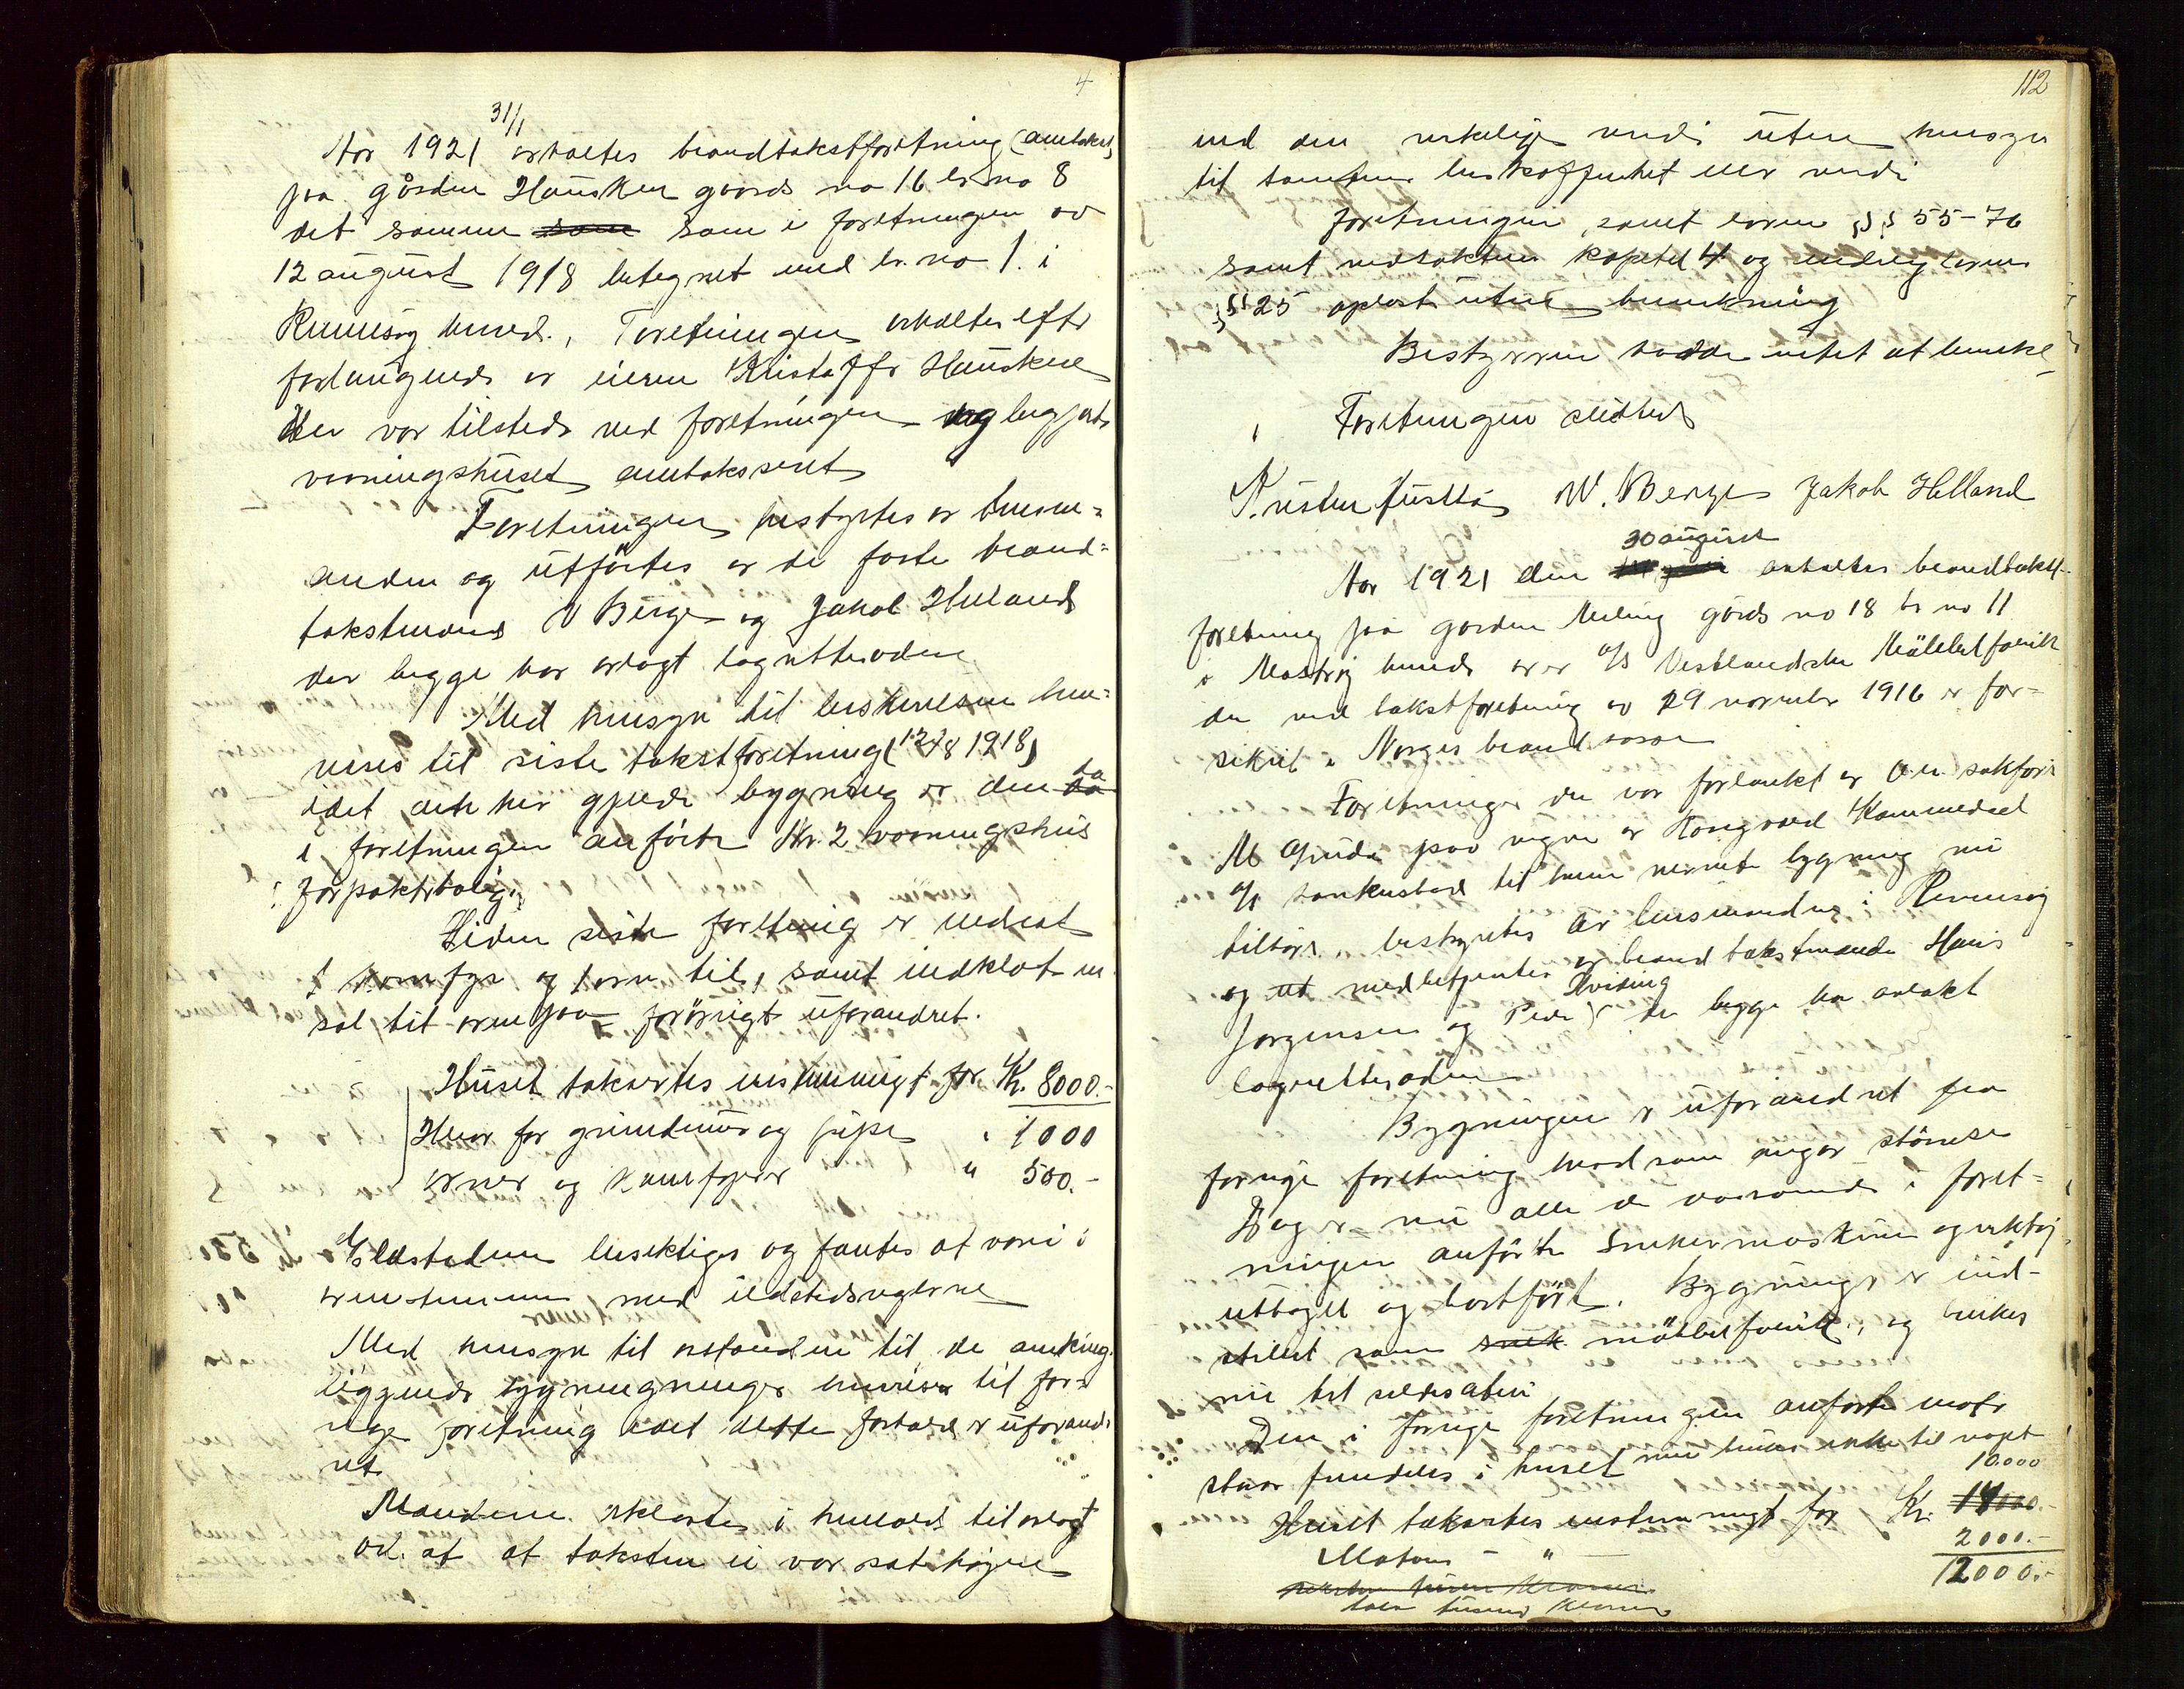 4
31/1
Aar 1921 avholtes brandtakstforretning (omtakst)
paa gården Hausken gaards no 16 br no 8
det samme som i forretningen av
12 august 1918 betegnet med br. no 1. i
Rennesøy herred. Forretningen avholtes efter
forlangende av eieren Kristoffer Hausken
Der var tilstede ved forretningen og begjærte
vaaningshuset omtakseret
Forretningen bestyrtes av lensm-
anden og utførtes av de faste brand-
takstmænd W Berge og Jakob Helland
der begge har avlagt lagretteseden
Med hensyn til beskrivelsen hen-
vises til siste takstforretning (12/8 1918)
idet den her gjælde bygning er den da
i forretningen anførte Nr. 2 vaaningshus
i forpakterbolig.
Siden siste forretning er indsat
1 komfyr og 1 ovn til, samt indklædt en
sal til ovenpaa forøvrigt uforandret.
Huset takseres instemmigt for Kr. 8000.-
Herav for grundmur og pipe " 1000
ovner og komfyrer " 500.-
Ildstederne besiktiges og fantes at være i
overenstemmelse med ildstedsreglerne
Med hensyn til avstanden til de omkring-
liggende bygninger henvises til for-
rige forretning idet dette forhold er uforand-
ret
Mændene erklærte i henhold til avlagt
ed at at taksten ei var sat høiere
112
end den virkelige verdi uten hensyn
til tomtens beskaffenhet eller verdi
Forretningen, samt loven §§ 55-76
samt instruksens kapitel 4 og endring loven
§§ 25 oplæst uten bemerkning
Bestyreren hadde intet at bemerke
Forretningen sluttet
W. Berge Jakob Helland
30 august
Aar 1921 den avholtes brandtakst-
forretning paa gården Meling gårds no 18 br no 11
i Mosterøy herred av A/S Vestlandske Møbelfabrik
der ved takstforretning av 29 november 1916 er for-
sikret i Norges brandkasse
Forretningen der var forlankt av O.r. sakfører
M Gjude paa vegne av
A/S til hvem nevnte bygning nu
tilhører, bestyrtes av lensmanden i Rennesøy
og ut medbetjentes av brandtakstmænde Hans
Jørgensen og Peder Kvising der begge har avlakt
lagretteseden
Bygningen er uforandret fra
forrige forretning hvad som angår størrelse
Dog er nu alle de værende i forret-
ningen anførte snekermaskiner og verktøi
uttaget og bortført. Bygningen er ind-
stillet som snek. møbbelfabrik, og brukes
nu til sildesalteri
Den i forrige forretningen anførte motor
staar fremdeles i huset men brukes ikke til noget
10.000
Huset takseres enstemmigt for Kr. 14000.-
Motoren - " - 2000.-
12000.-
tolv tusen kroner